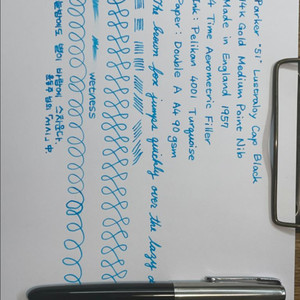 Parker '51' Lusteraloy Cap Black
14K Gold Medium Point Nib
Made in England 1957
4 Time Aerometric Filler
Ink: Pelikan 4001 Turquoise
Paper: Double A A4 90gsm
The brown fox jumps quickly over the lazy
wetness
별이 바람에 스치운다.
윤동주 님의 「서시」 中.